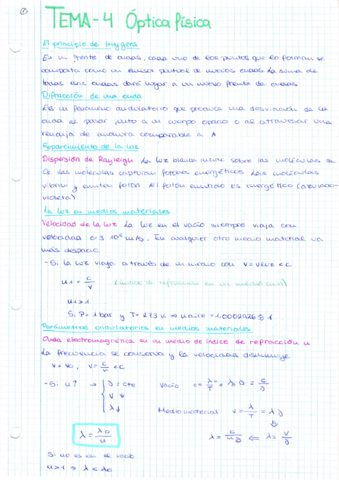 TEMA-4 Óptica física
El principio de Huygens
En un frente de ondas, cada uno de los puntos que lo forman se
comporta como un emisor puntual de nuevas ondas. La suma de
todas ondas dará lugar a un nuevo frente de ondas
Difracción de una onda
Es un fenómeno ondulatorio que produce una desviación de la
onda al pasar junto a un cuerpo opaco o al atravesar una
rendija de anchura comparable a λ
Esparcimiento de la luz
Dispersión de Rayleigh La luz blanca incide sobre las moléculas de
las moléculas capturan fotones energéticos. Las moléculas
vibran y emiten fotón. El fotón emitido es energético (azul-
violeta)
La luz en medios materiales
Velocidad de la luz La luz en el vacío siempre viaja con
velocidad c=3 10⁸ m/s. En cualquier otro medio material va
más despacio
- Si la luz viaja a través de un medio con v = vluz < c
n1 = c/v (índice de refracción en un medio)
n1>1
S. P=1bar y T=273 k → naire = 1.0002926 ≈ 1
Parámetros ondulatorios en medios materiales
Onda electromagnética en un medio de índice de refracción n
La frecuencia se conserva y la velocidad disminuye
v = c/n < c
- Si n↑ → ν = cte Vacío c = λ/T
v↓
λ↓ Medio material v = λ/T
λ = λ0/n
Si no es en el vacío
n>1 → λ < λ0